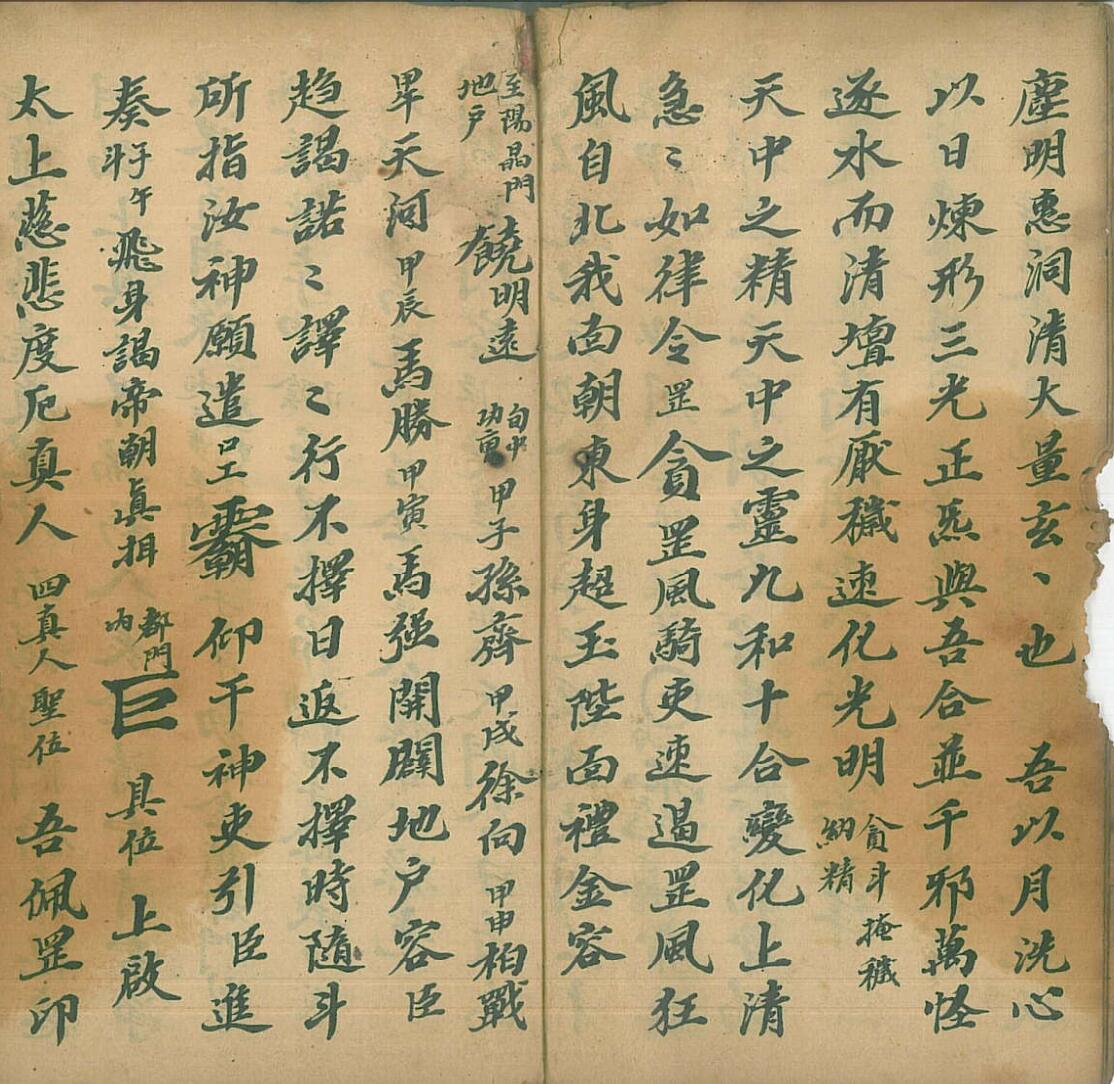 塵明惠洞清大量玄、也 吾以月洗心
以日煉形三光正炁與吾合並千邪萬怪
逐水而清壇有厭穢速化光明 貪斗掩穢 納精
天中之精天中之靈九和十合變化上清
急〻如律令罡貪罡風騎吏速遏罡風狂
風自北我面朝東身超玉陛面禮金容
至陽晶門 地户 饒明遠 甲子孫齊甲戌徐向甲申柏戰
畢天河甲辰馬勝甲寅馬强開闢地户容臣
趋謁諾〻譯〻行不擇日返不擇時隨斗
所指汝神願遣 霸仰干神吏引臣進
奏 斗子午飛身謁帝朝真 都門内 巨 具位 上啟
太上慈悲度厄真人 四真人聖位 吾佩罡印